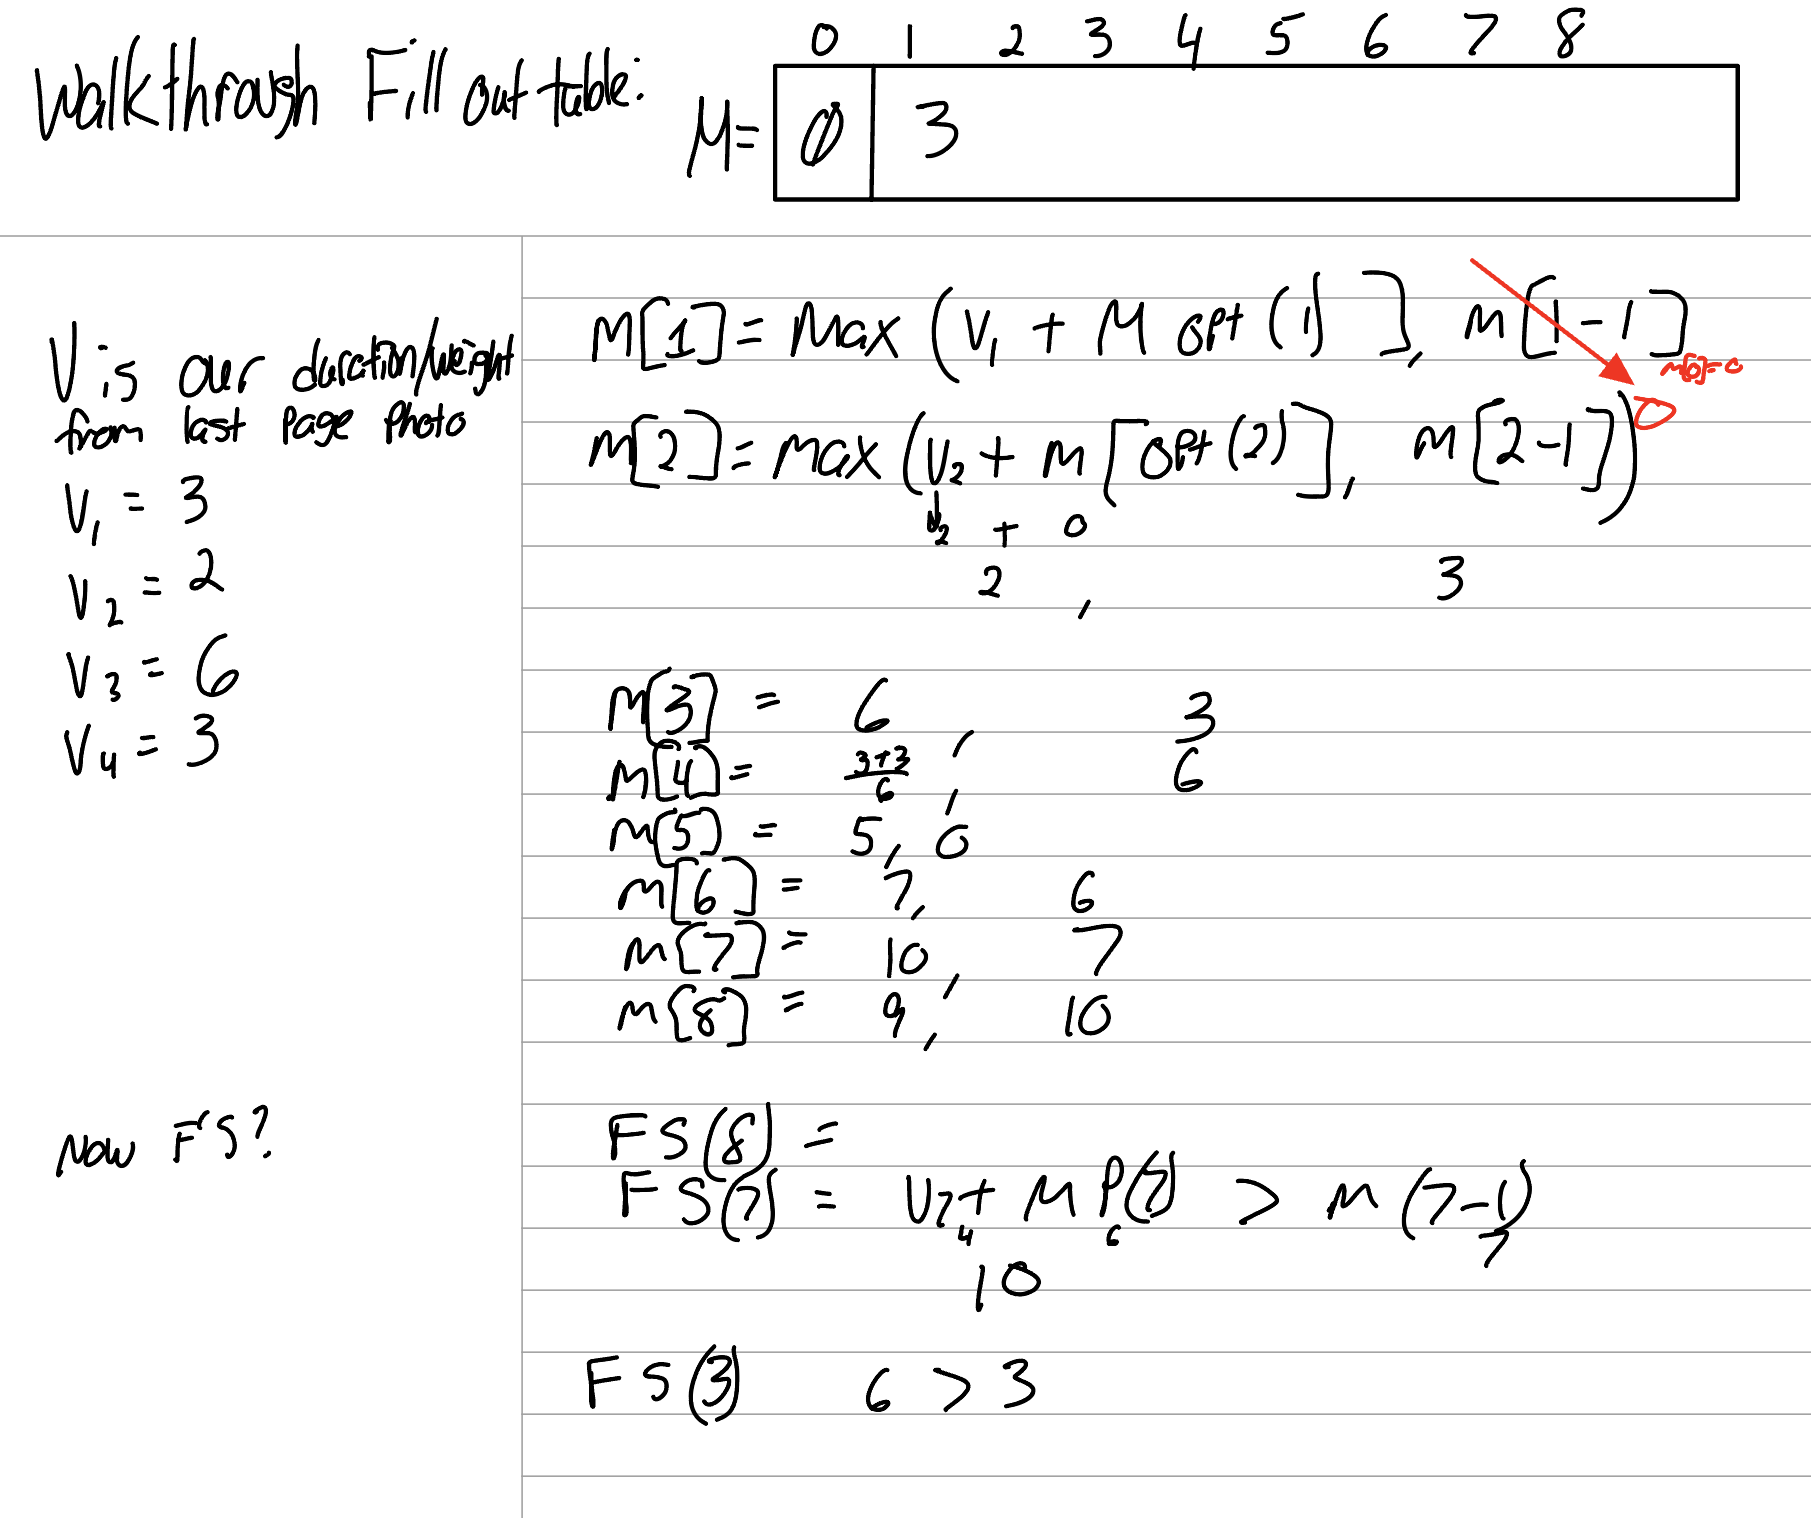 0 1 2 3 4 5 6 7 8
Walkthrough Fill out table: M= 0 3
V is our duration/weight
from last page photo
V1 = 3
V2 = 2
V3 = 6
V4 = 3
M[1] = Max (V1 + M opt(1)], m[1-1]
m[0]=0
0
m[2] = max (V2 + m[opt(2)], m[2-1])
V2 + 0
2, 3
m[3] = 6, 3
m[4] = 3+3 6, 6
m[5] = 5, 0
m[6] = 7, 6
m[7] = 10, 7
m[8] = 9, 10
Now FS?
FS(8) =
FS(7) = V7+ M P(7) > M(7-1)
4 6 7
10
FS(3) 6 > 3